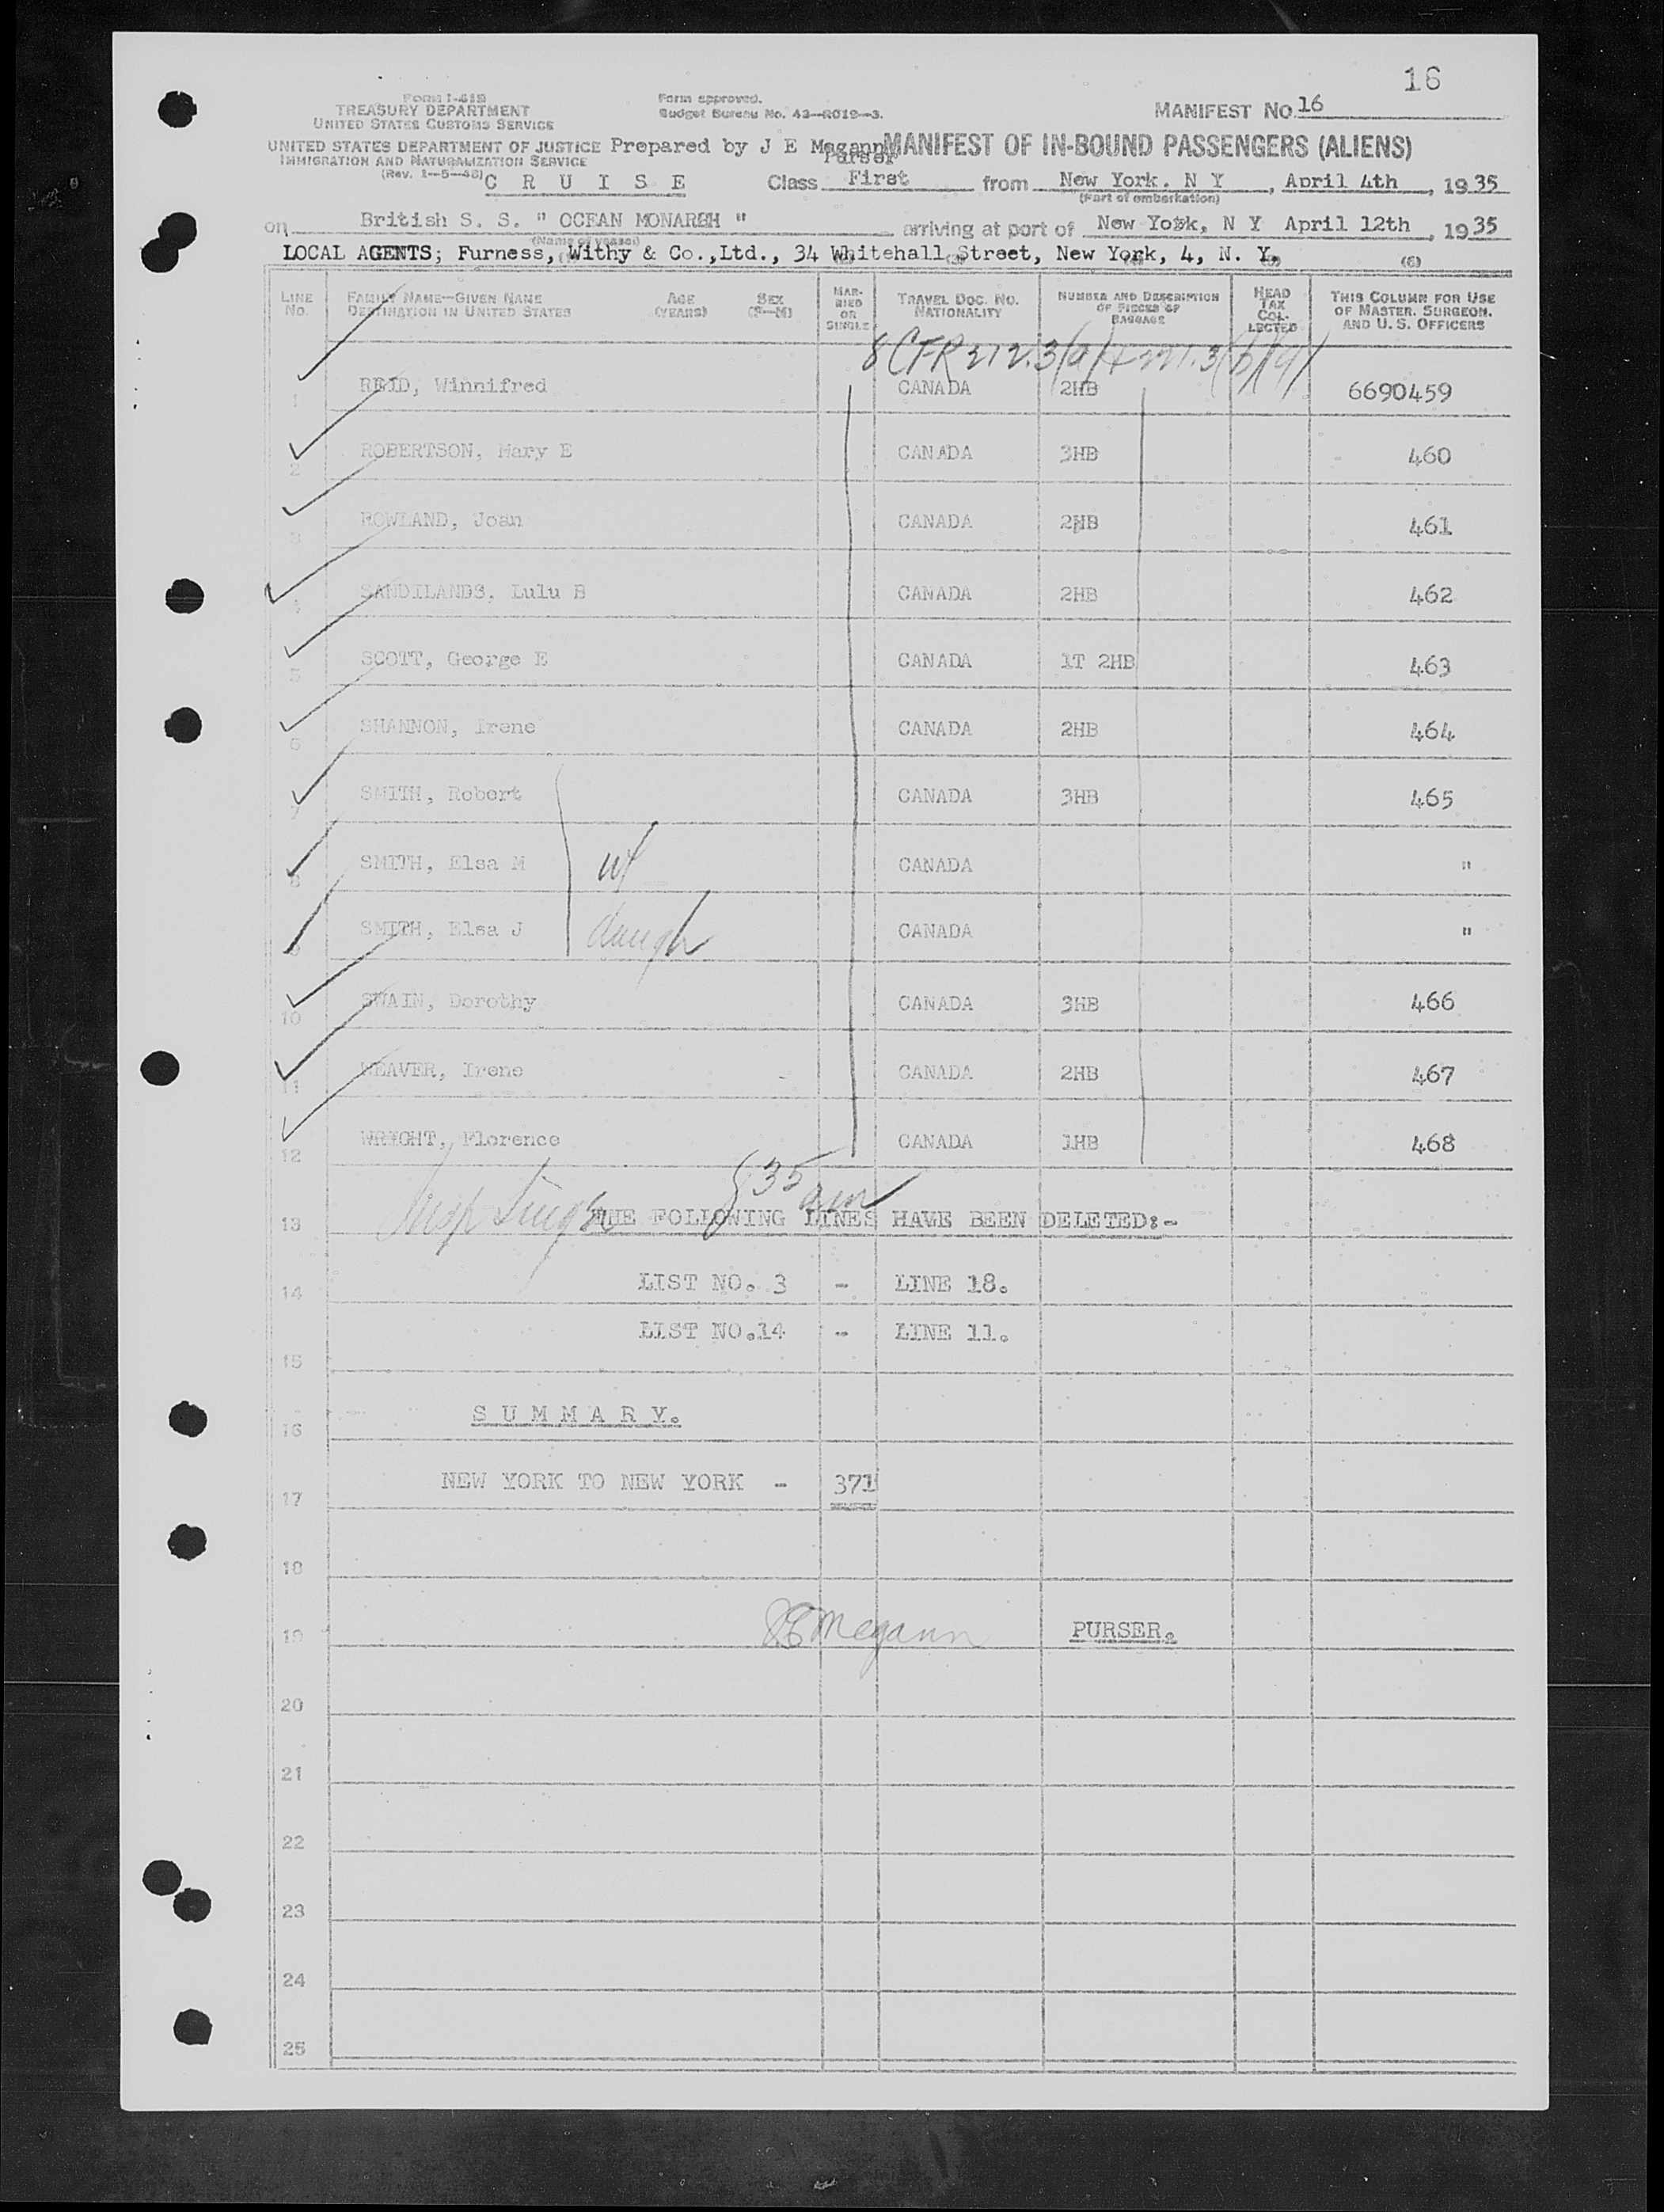 16
Form I-418
TREASURY DEPARTMENT
UNITED STATES CUSTOMS SERVICE
Form approved.
Budget Bureau No. 43-R019-3.
MANIFEST No. 16
UNITED STATES DEPARTMENT OF JUSTICE
IMMIGRATION AND NATURALIZATION SERVICE
(Rev. 1-5-48)
Prepared by J E Megann
Purser
MANIFEST OF IN-BOUND PASSENGERS (ALIENS)
C R U I S E Class First from New York. N Y, April 4th, 1935
(Port of embarkation)
on British S. S. " OCEAN MONARCH " arriving at port of New York, N Y April 12th, 1935
(Name of vessel)
LOCAL AGENTS; Furness, Withy & Co.,Ltd., 34 Whitehall Street, New York, 4, N. Y.
(3) (6)
LINE No. FAMILY NAME—GIVEN NAME DESTINATION IN UNITED STATES AGE (YEARS) SEX (F—M) MARRIED OR SINGLE TRAVEL DOC. NO. NATIONALITY NUMBER AND DESCRIPTION OF PIECES OF BAGGAGE HEAD TAX COLLECTED THIS COLUMN FOR USE OF MASTER, SURGEON, AND U. S. OFFICERS
8 CFR 212.3(a)
1 REID, Winnifred CANADA 2HB 6690459
2 ROBERTSON, Mary E CANADA 3HB 460
3 ROWLAND, Joan CANADA 2HB 461
4 SANDILANDS, Lulu B CANADA 2HB 462
5 SCOTT, George E CANADA 1T 2HB 463
6 SHANNON, Irene CANADA 2HB 464
7 SMITH, Robert CANADA 3HB 465
8 SMITH, Elsa M w CANADA "
9 SMITH, Elsa J daugh CANADA "
10 SWAIN, Dorothy CANADA 3HB 466
11 WEAVER, Irene CANADA 2HB 467
12 WRIGHT, Florence CANADA 1HB 468
835 am
13 THE FOLLOWING LINES HAVE BEEN DELETED:-
14 LIST NO. 3 - LINE 18.
LIST NO.14 - LINE 11.
15
16 S U M M A R Y.
17 NEW YORK TO NEW YORK - 371
18
19 J E Megann PURSER.
20
21
22
23
24
25